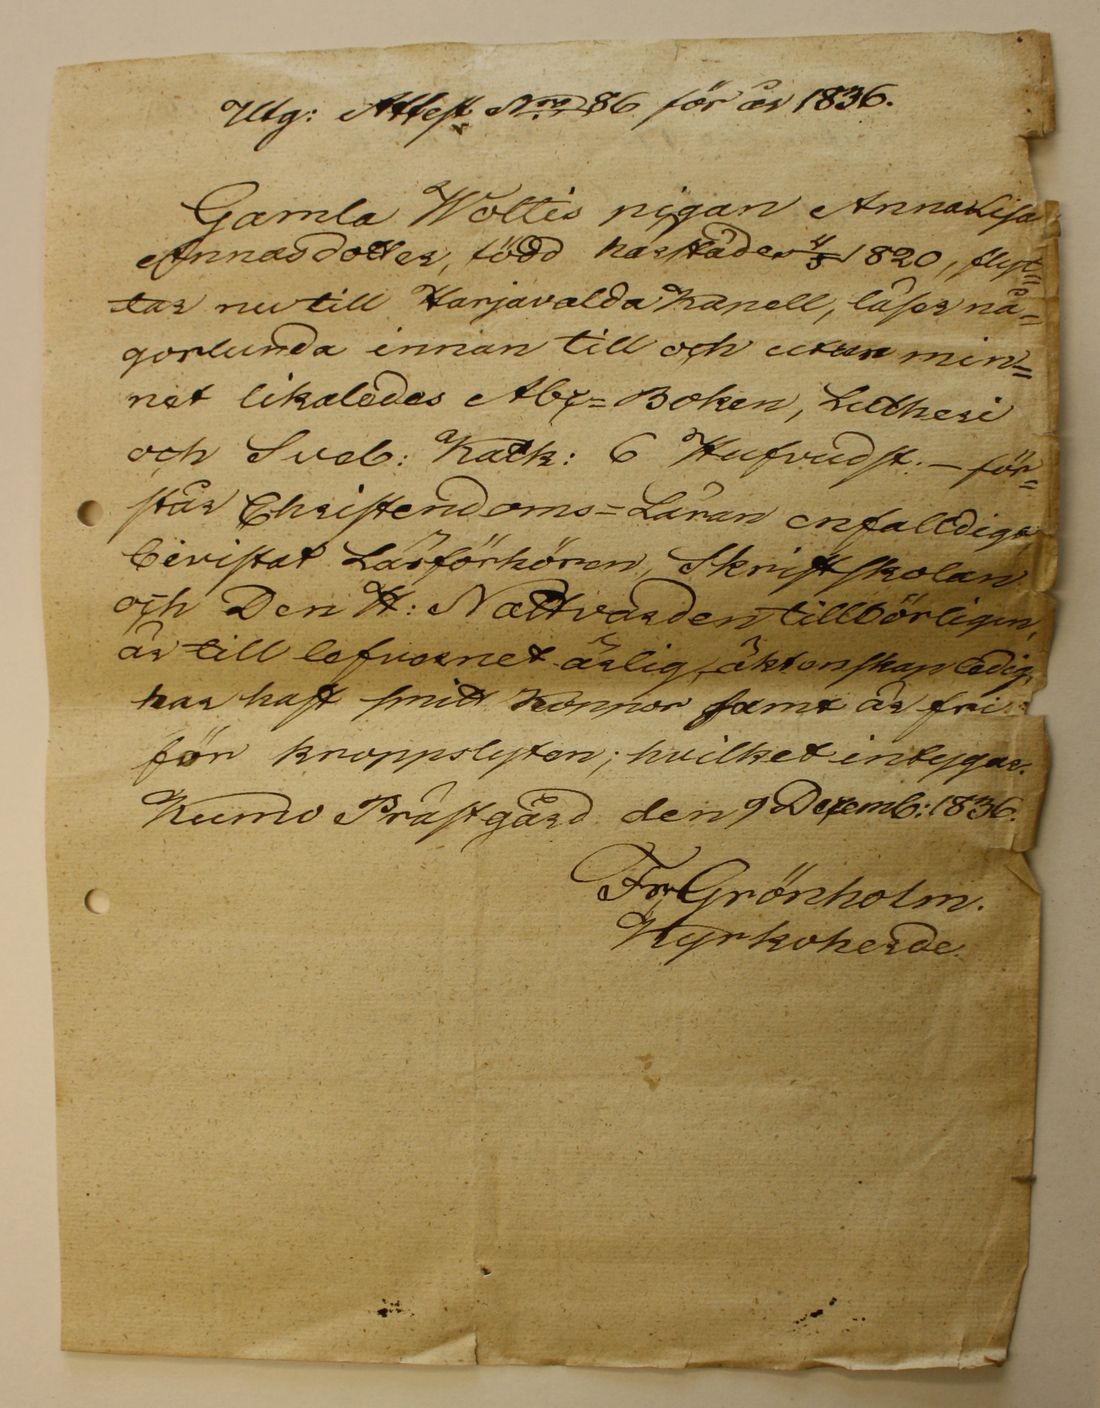 Utg: Attest Nro 86 för år 1836.
Gamla Woltis pigan Anna Lisa
Annasdotter, född härstädes 4/5 1820, flyt=
tar nu till Harjavalda Kapell, läser nå=
gorlunda innan till och utur min=
net likaledes Abc=Boken, Lutheri
och Sveb: Katk: 6 Hufvudst. – för=
står Christendoms=Läran enfalldigt
bevistat Läsförhören, Skriftskolan
och Den H: Nattvarden tillbörligen,
är till lefvernet ärlig, äktenskap ledig,
har haft smitt Koppor samt är fri
för kroppslyten; hvilket intygar.
Kumo Prästgård den 9 Decemb: 1836.
Fr Grönholm.
Kyrkoherde.